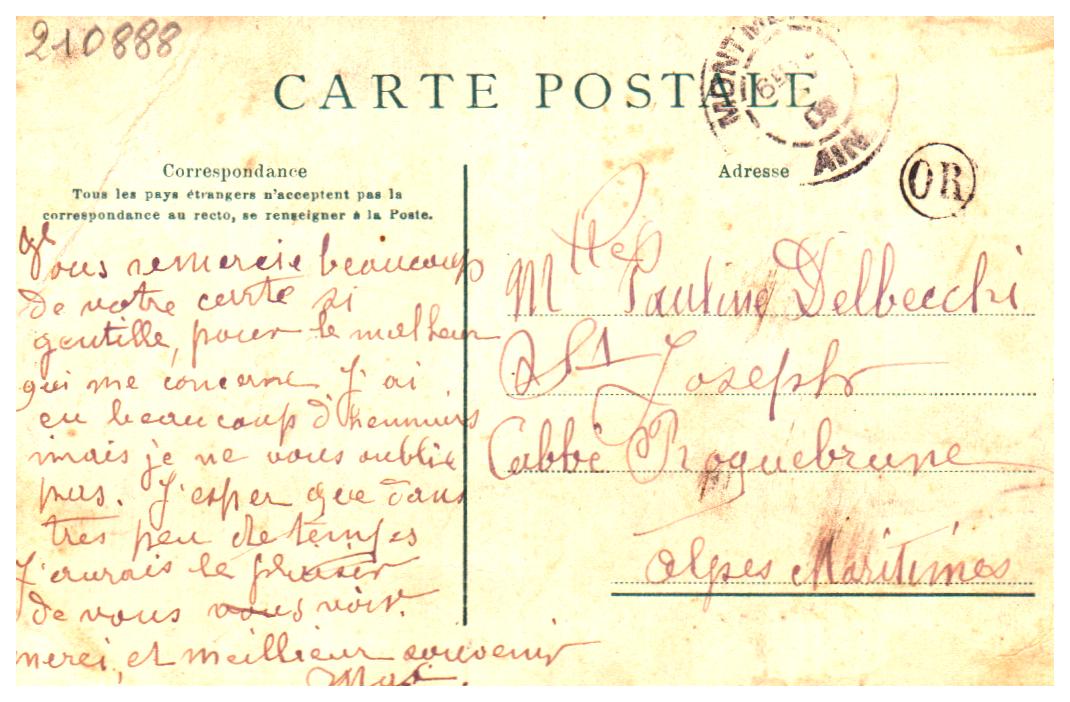 210888
CARTE POSTALE
MONTM
6E
09
AIN
OR
Correspondance
Tous les pays étrangers n'acceptent pas la
correspondance au recto, se renseigner à la Poste.
Je
Vous remercie beaucoup
de votre carte si
gentille, pour le malheur
qui me concerne J'ai
eu beaucoup d'hennuirs
mais je ne vous oublie
pas. J'esper que dans
très peu de temps
J'aurais le plaisir
de vous vous voir.
merci, et meillieur souvenir
Adresse
Mlles Pauline Delbecchi
St Joseph
Cabbé Roquebrune
Alpes Maritimes